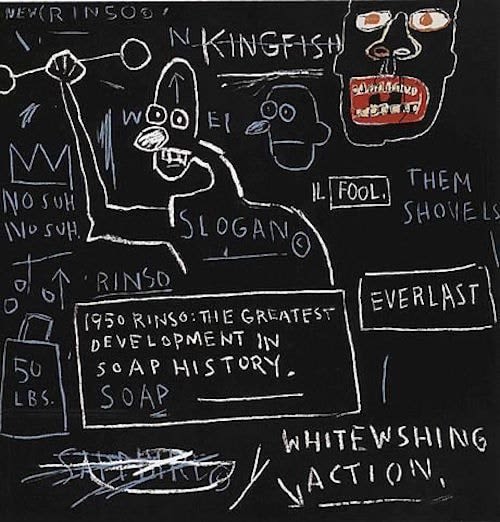 NEW (RINSO©)
KINGFISH
N
W
EI
NO SUH
NO SUH.
SLOGAN©
IL FOOL.
THEM
SHOVELS
RINSO
EVERLAST
1950 RINSO: THE GREATEST
DEVELOPMENT IN
SOAP HISTORY.
SOAP
50
LBS.
SAPPHIRE©
WHITEWSHING
ACTION.